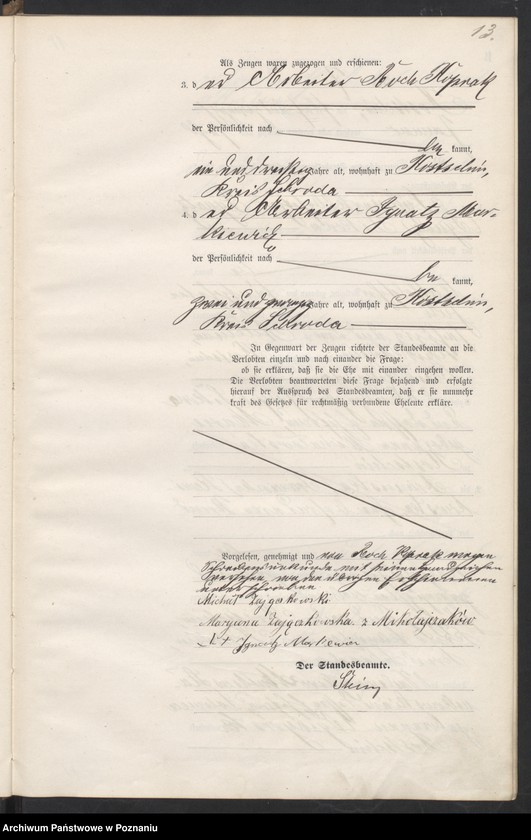 13.
Als Zeugen waren zugezogen und erschienen:
3. d er Arbeiter Roch Koprak
der Persönlichkeit nach
be kannt,
ein und dreißig Jahre alt, wohnhaft zu Kostschin,
Kreis Schroda
4. d er Arbeiter Ignatz Mar-
kiewicz
der Persönlichkeit nach
be kannt,
zwei und Jahre alt, wohnhaft zu Kostschin,
Kreis Schroda
In Gegenwart der Zeugen richtete der Standesbeamte an die
Verlobten einzeln und nach einander die Frage:
ob sie erklären, daß sie die Ehe mit einander eingehen wollen.
Die Verlobten beantworteten diese Frage bejahend und erfolgte
hierauf der Ausspruch des Standesbeamten, daß er sie nunmehr
kraft des Gesetzes für rechtmäßig verbundene Eheleute erkläre.
Vorgelesen, genehmigt und von Roch Koprak wegen
Schreibensunkunde mit seinem Handzeichen
versehen, von den übrigen Erschienenen
unterschrieben
Michał Zajączkowski
Maryanna Zajączkowska z Mikołajczaków
+++ Ignatz Markiewicz
Der Standesbeamte.
Archiwum Państwowe w Poznaniu